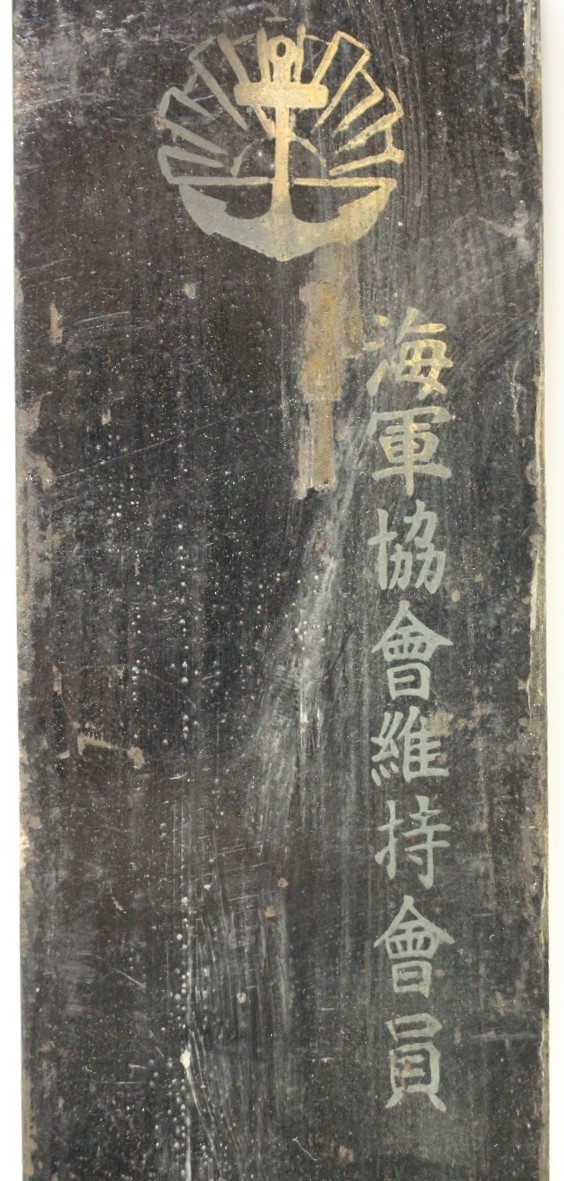 海軍協會維持會員